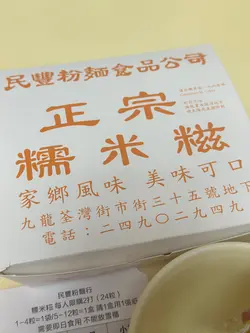 民豐粉麵食品公司
正宗
糯米糍
家鄉風味 美味可口
九龍荃灣街市街三十五號地下
電話：二四九〇二九四九
民豐粉麵行
糯米糍 每人限購2打（24粒）
1~4粒=1袋/5~12粒=1盒
需要即日食用 不能放雪櫃